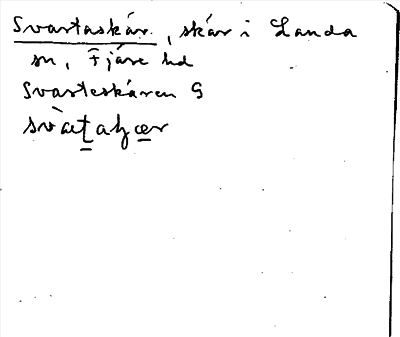 Svartaskär, skär i Landa
sn, Fjäre hd
Svarteskären G